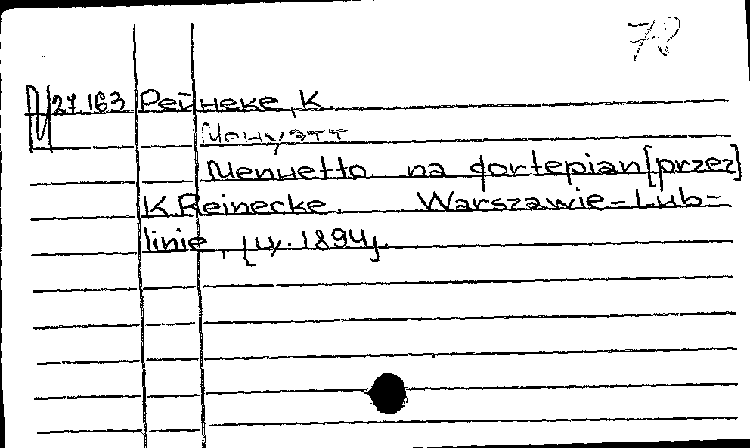 78
27.163 Рейнеке, К.
Менуэтт
Menuetto na fortepian [przez]
K. Reinecke. Warszawie-Lub-
linie, [ц. 1894].